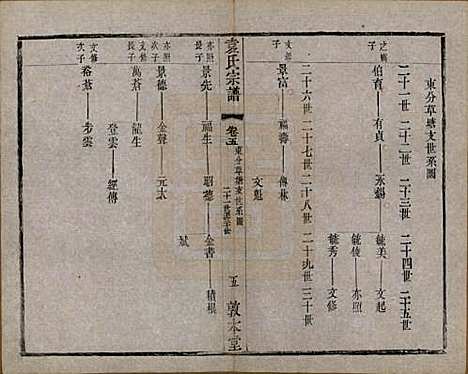 東分草塘支世系圖
二十一世 二十二世 二十三世 二十四世 二十五世
伯育 有貞 永錫 毓美 文起
毓倰 亦照
毓秀 文修
袁氏宗譜
卷五
東分草塘支世系圖
二十一世至三十世
五
敦本堂
二十六世 二十七世 二十八世 二十九世 三十世
文起子
景富 福壽 傳林
文魁
亦照長子
景先 福生 昭德 金書 積根
斌
亦照次子
景德 金聲 元太
文修長子
萬蒼 龍生
登雲 經傳
文修次子
裕蒼 步雲